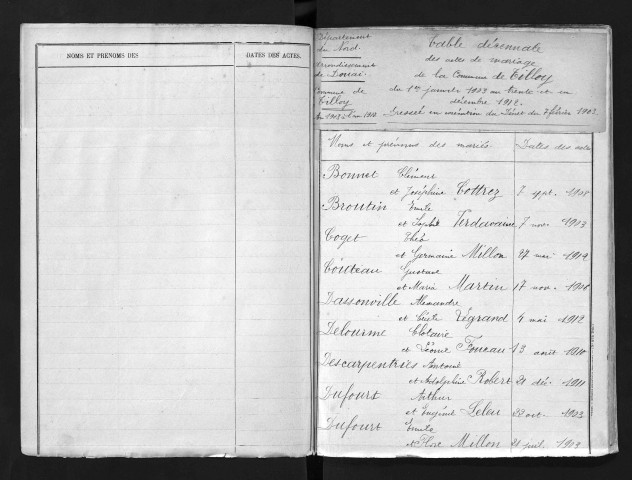 NOMS ET PRÉNOMS DES
DATES DES ACTES.
Département
du Nord.
Arrondissement
de Douai
Commune de
Tilloy
Table décennale
des actes de mariage
de la Commune de Tilloy
du 1er janvier 1903 au trente et un
décembre 1912.
Dressée en exécution du Décret du
Noms et prénoms des mariés
Dates des actes
Bonnet Clément
et Joséphine Cottrez 7 sept. 1908
Broutin Emile
et Sophie Verdavaine 7 nov. 1903
Coget Théo
et Germaine Millon 27 mai 1912
Couteau Gustave
et Maria Martin 17 nov.
Dassonville Alexandre
et Légrand 4 mai 1912
Delourme Clotaire
et Léonie 13 août 1910
Descarpentries Antoine
et Adolphine Robert 21 déc. 1911
Dufourt Arthur
et Eugénie Leleu 22 oct. 1903
Dufourt Emile
et Millon 21 juil.